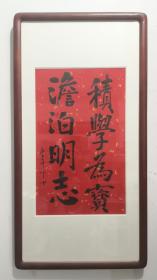 積學為寶
澹泊明志